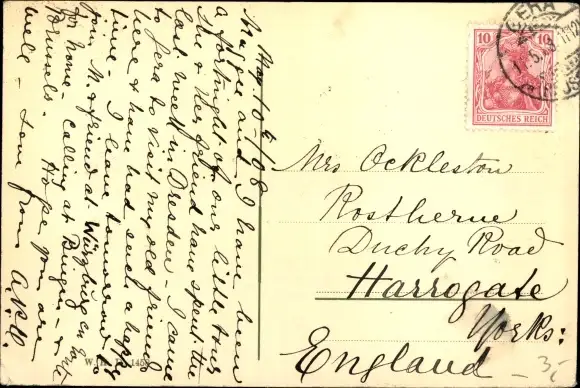 May 10th/08
Maggie and I have been
a fortnight of our little tour
She & her friend have spent the
last week in Dresden - I came
to here to visit my old friend
here & have had such a happy
time - I leave tomorrow to
join M. & friend at Würzburg en route
for home - calling at Bingen - &
Brussels. Hope you are
well - love from A.K.O.
10 10
DEUTSCHES REICH
GERA
Mrs Ockleston
Rostherne
Duchy Road
Harrogate
Yorks:
England
3,-